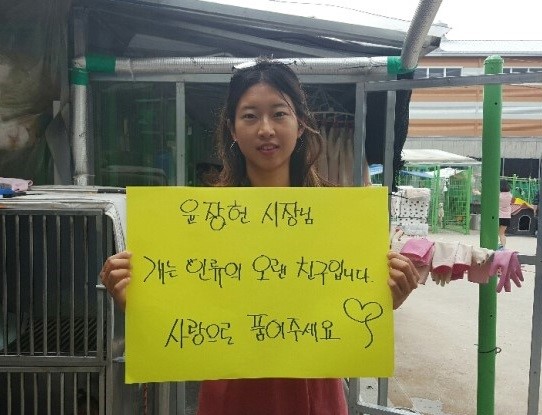 윤장현 시장님
개는 인류의 오랜 친구입니다.
사랑으로 품어주세요